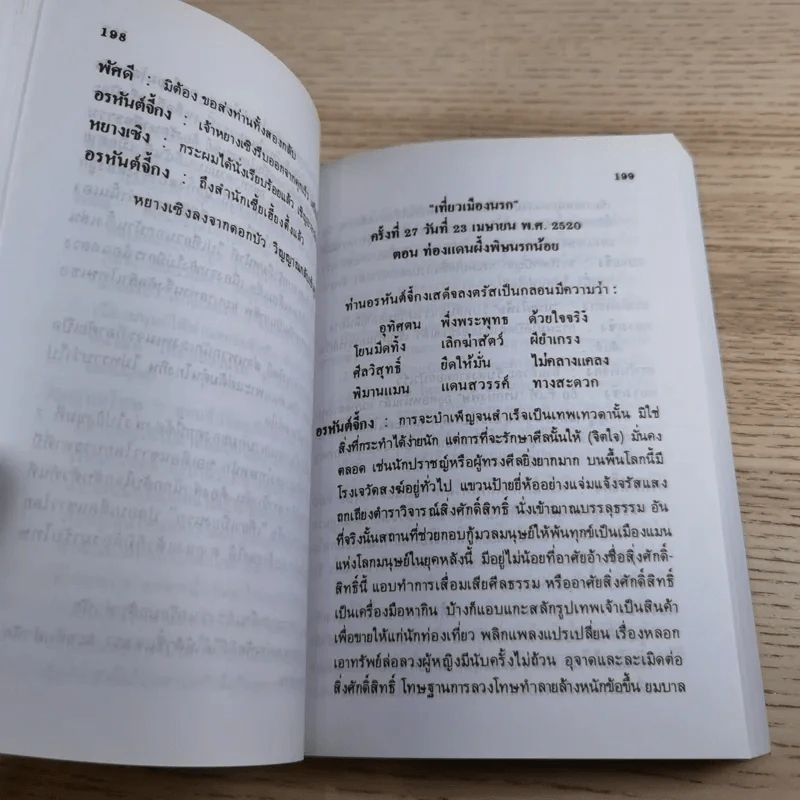 198
พัศดี : มิต้อง ขอส่งท่านทั้งสองกลับ
อรหันต์จี้กง : เจ้าหยางเซิงรีบออกจากคุกเร็ว
หยางเซิง : กระผมได้นั่งเรียบร้อยแล้ว
อรหันต์จี้กง : ถึงสำนักเซี้ยเฮี้ยงตึ้งแล้ว
หยางเซิงลงจากดอกบัว วิญญาณ
199
"เที่ยวเมืองนรก"
ครั้งที่ 27 วันที่ 23 เมษายน พ.ศ. 2520
ตอน ท่องแดนผึ้งพิษนรกน้อย
ท่านอรหันต์จี้กงเสด็จลงตรัสเป็นกลอนมีความว่า :
อุทิศตน พึ่งพระพุทธ ด้วยใจจริง
โยนมีดทิ้ง เลิกฆ่าสัตว์ ผียำเกรง
ศีลวิสุทธิ์ ยึดให้มั่น ไม่คลางแคลง
พิมานแมน แดนสวรรค์ ทางสะดวก
อรหันต์จี้กง : การจะบำเพ็ญจนสำเร็จเป็นเทพเทวดานั้น มิใช่
สิ่งที่กระทำได้ง่ายนัก แต่การที่จะรักษาศีลนั้นให้ (จิตใจ) มั่นคง
ตลอด เช่นนักปราชญ์หรือผู้ทรงศีลยิ่งยากมาก บนพื้นโลกนี้มี
โรงเจวัดสงฆ์อยู่ทั่วไป แขวนป้ายยี่ห้ออย่างแจ่มแจ้งจรัสแสง
ถกเถียงตำราวิจารณ์สิ่งศักดิ์สิทธิ์ นั่งเข้าฌาณบรรลุธรรม อัน
ที่จริงนั้นสถานที่ช่วยกอบกู้มวลมนุษย์ให้พ้นทุกข์เป็นเมืองแมน
แห่งโลกมนุษย์ในยุคหลังนี้ มีอยู่ไม่น้อยที่อาศัยอ้างชื่อสิ่งศักดิ์-
สิทธิ์นี้ แอบทำการเสื่อมเสียศีลธรรม หรืออาศัยสิ่งศักดิ์สิทธิ์
เป็นเครื่องมือหากิน บ้างก็แอบแกะสลักรูปเทพเจ้าเป็นสินค้า
เพื่อขายให้แก่นักท่องเที่ยว พลิกแพลงแปรเปลี่ยน เรื่องหลอก
เอาทรัพย์ล่อลวงผู้หญิงมีนับครั้งไม่ถ้วน อุจาดและละเมิดต่อ
สิ่งศักดิ์สิทธิ์ โทษฐานการลวงโทษทำลายล้างหนักข้อขึ้น ยมบาล